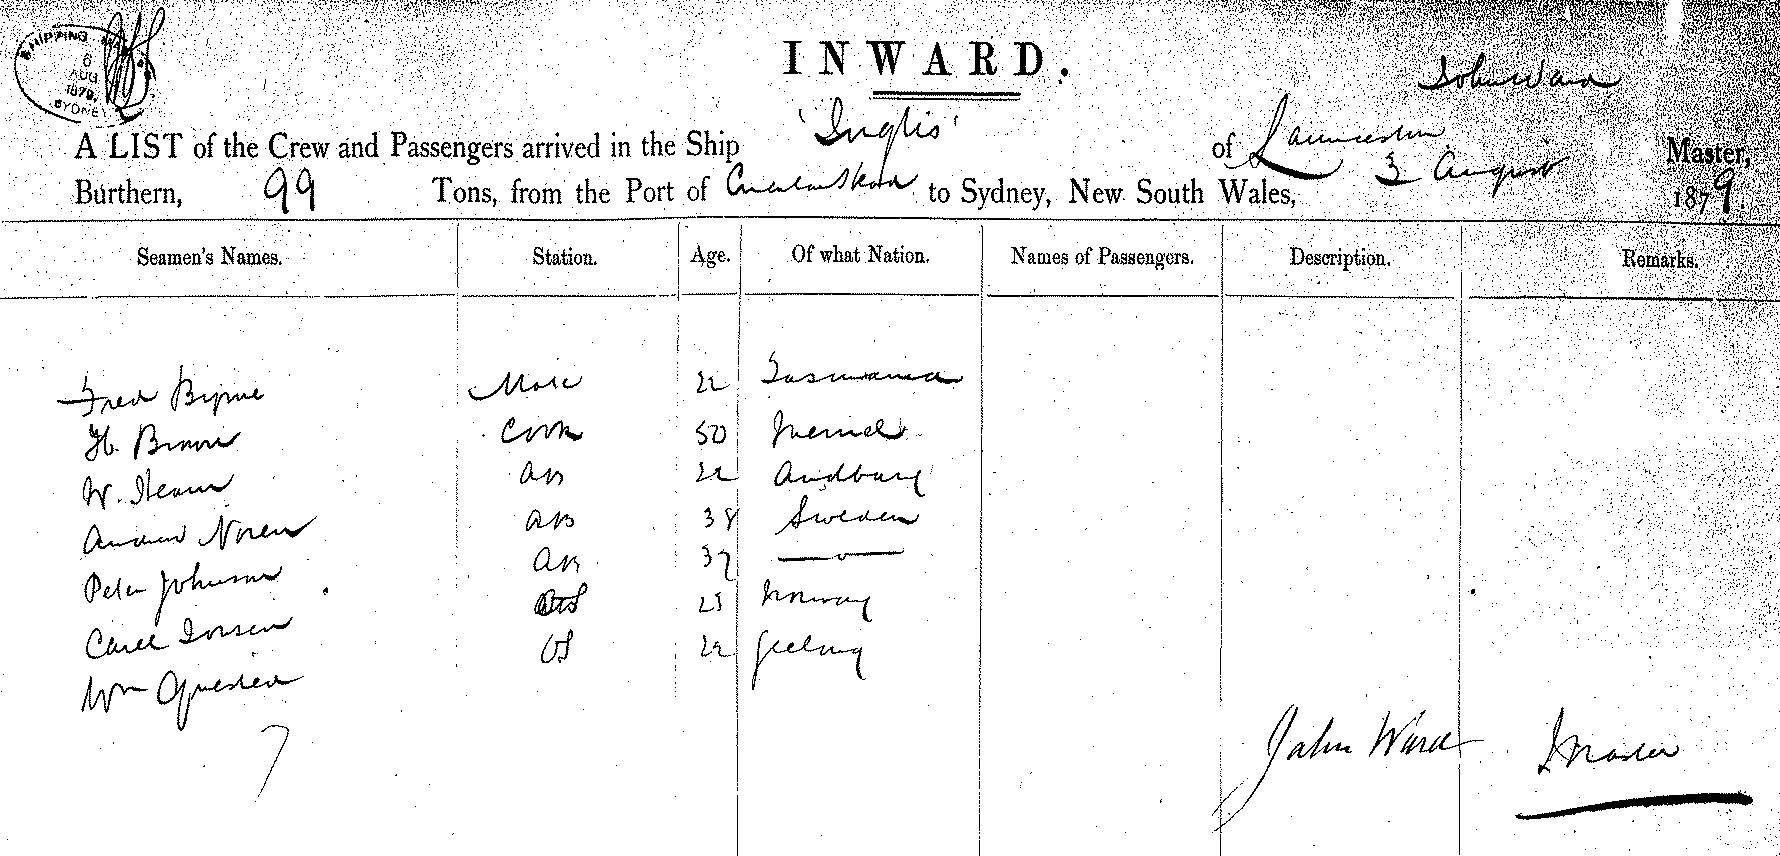 SHIPPING
6
AUG
1879
SYDNEY
INWARD.
John Ward
A LIST of the Crew and Passengers arrived in the Ship 'Inglis' of Launceston Master,
Burthern, 99 Tons, from the Port of to Sydney, New South Wales, 3 August 1879.
Seamen's Names. Station. Age. Of what Nation. Names of Passengers. Description. Remarks.
Fred Byrne Mate 22 Tasmania
H. Brown Cook 50
W. AB 22
Noren AB 38 Sweden
Peter Johnson AB 37 — o —
Carl 25 Norway
Wm OS 22 Geelong
7
John Ward Master